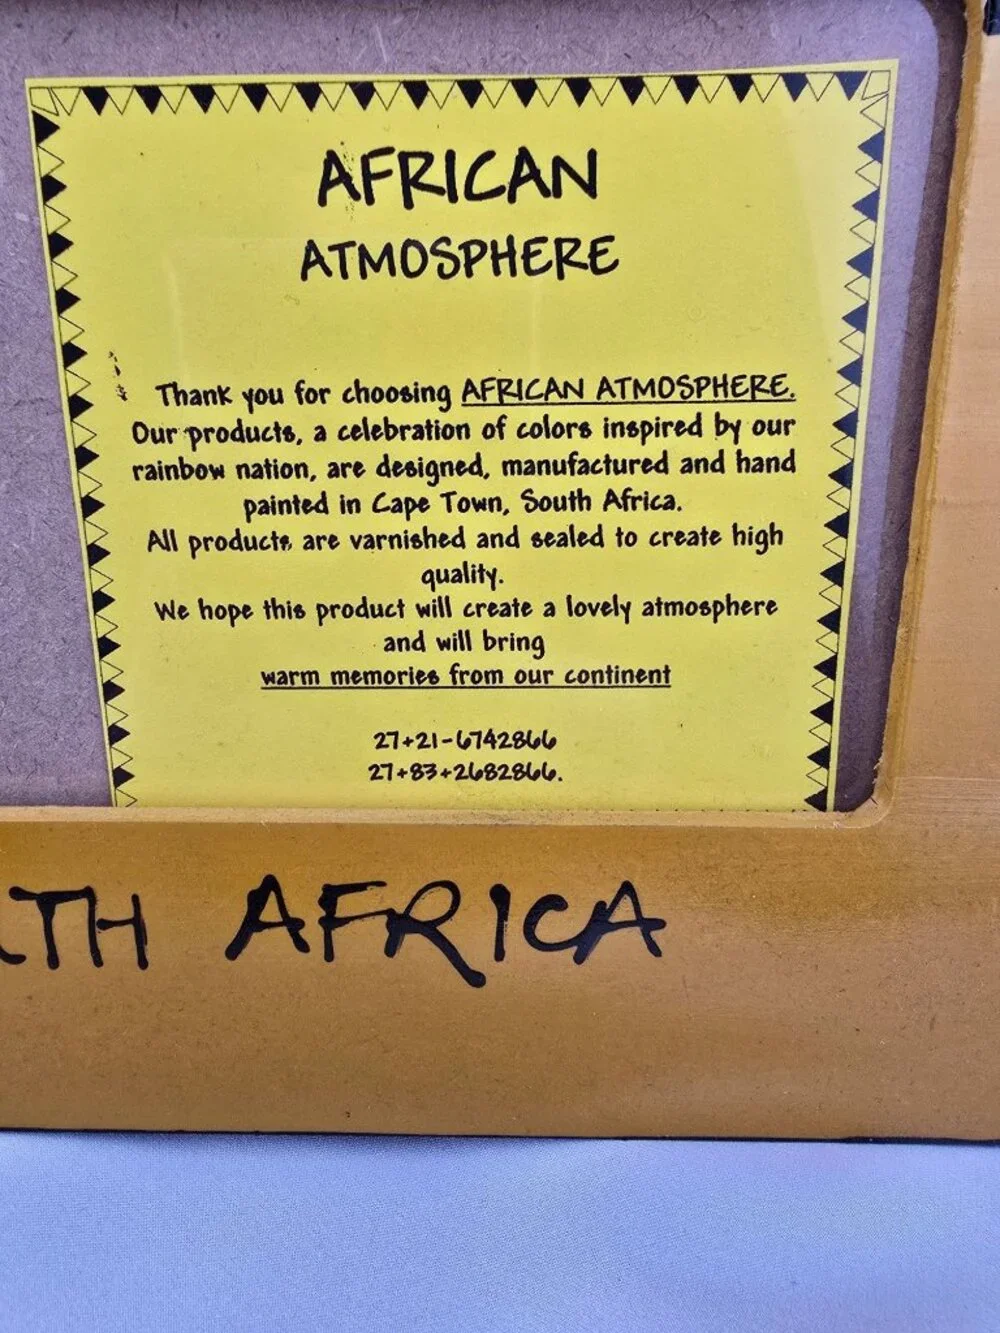 AFRICAN
ATMOSPHERE
Thank you for choosing AFRICAN ATMOSPHERE.
Our products, a celebration of colors inspired by our
rainbow nation, are designed, manufactured and hand
painted in Cape Town, South Africa.
All products are varnished and sealed to create high
quality.
We hope this product will create a lovely atmosphere
and will bring
warm memories from our continent
27+21-6742866
27+83+2682866.
TH AFRICA